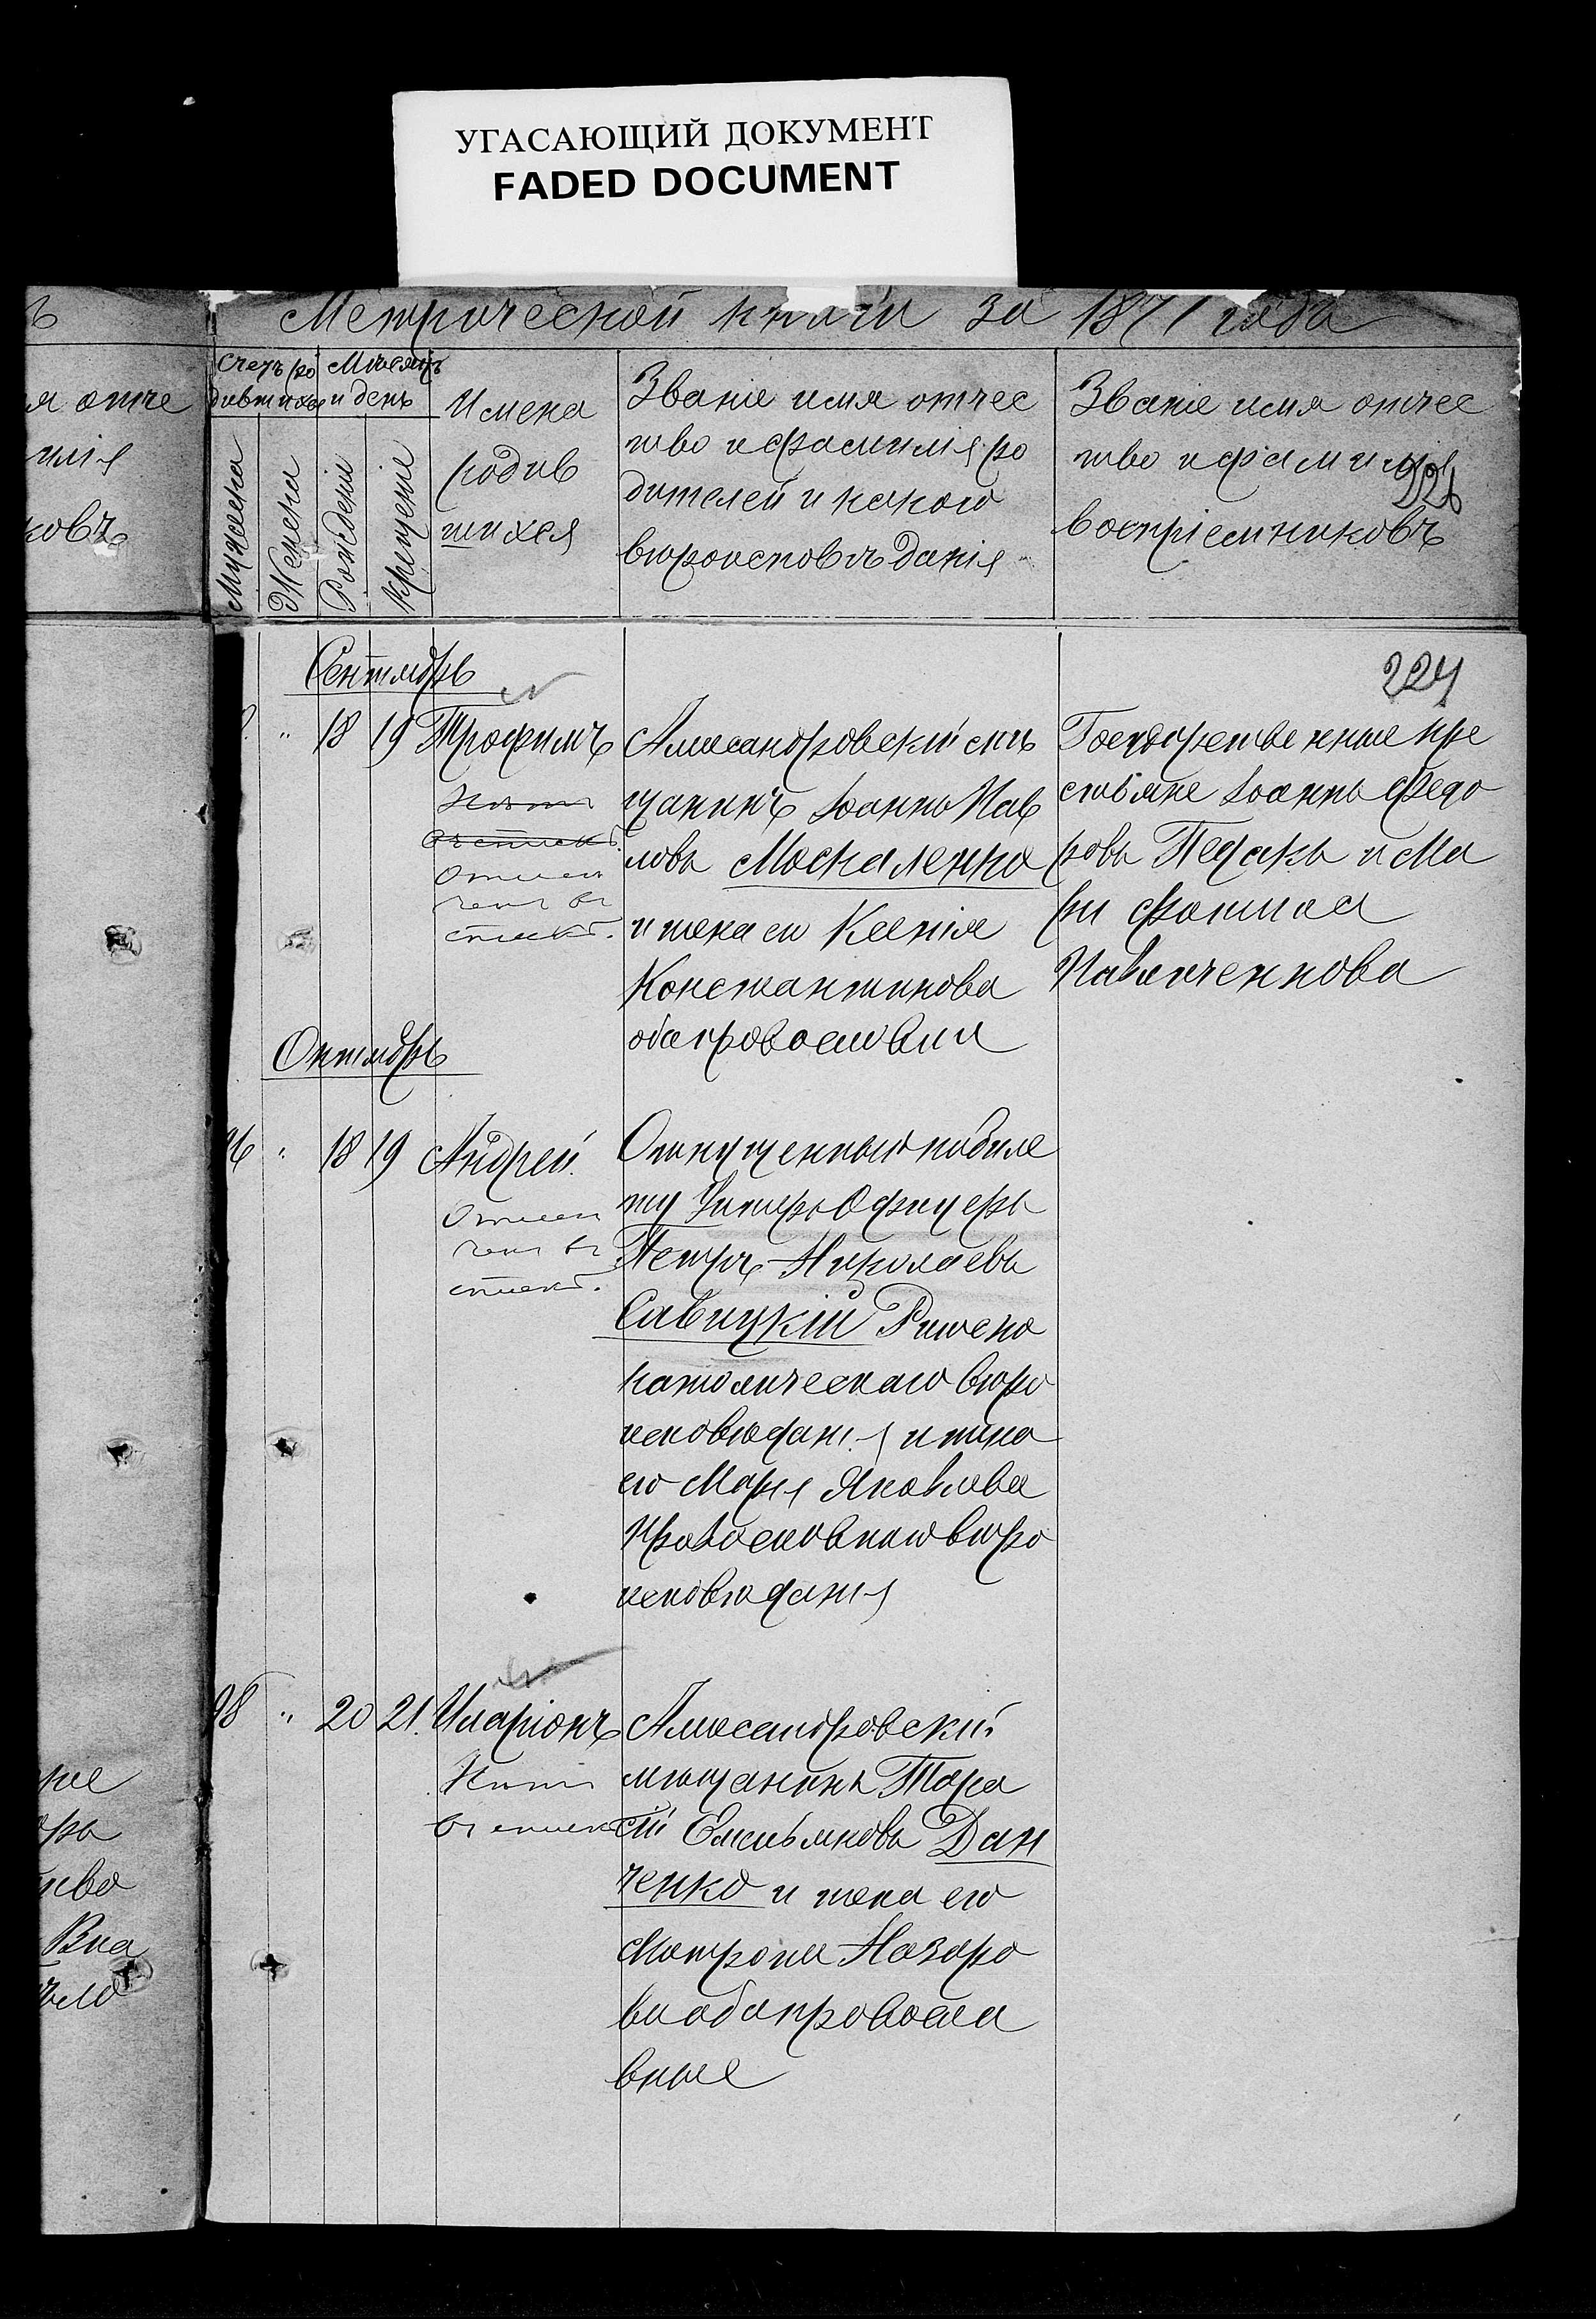 УГАСАЮЩИЙ ДОКУМЕНТ
FADED DOCUMENT
Метрической книги за 1871 года
я отче
илія
ковъ
Счетъ ро
дившихся
Мѣсяцъ
и день
Мужеска
Женска
Рожденія
Крещеніе
Имена
родив
шихся
Званіе имя отчес
тво и фамилія ро
дителей и какого
вѣроисповѣданія
Званіе имя отчес
тво и фамилія
воспріемниковъ
226
224
Сентябрь
" 18 19 Трофимъ
Отмѣ
ченъ въ
списке.
Александровскій мѣ
щанинъ Іоаннъ Пав
ловъ Москаленко
и жена его Ксенія
Константинова
оба православныи
Государственные кре
стьяне Іоаннъ Федо
ровъ Педакъ и Ма
рія Фомина
Павличенкова
Октябрь
96 " 18 19 Андрей
Отмѣ
ченъ въ
списке.
Отпущенный по биле
ту Унтеръ Офицеръ
Петръ Николаевъ
Савицкій Римско
католическаго вѣро
исповѣданія и жена
его Марія Яковлева
Православнаго вѣро
исповѣданія
98 " 20 21. Иларіонъ
Нѣтъ
въ списке
Александровскій
мѣщанинъ Тара
сій Емельяновъ Дан
ченко и жена его
Матрона Назаро
ва оба правосла
вные